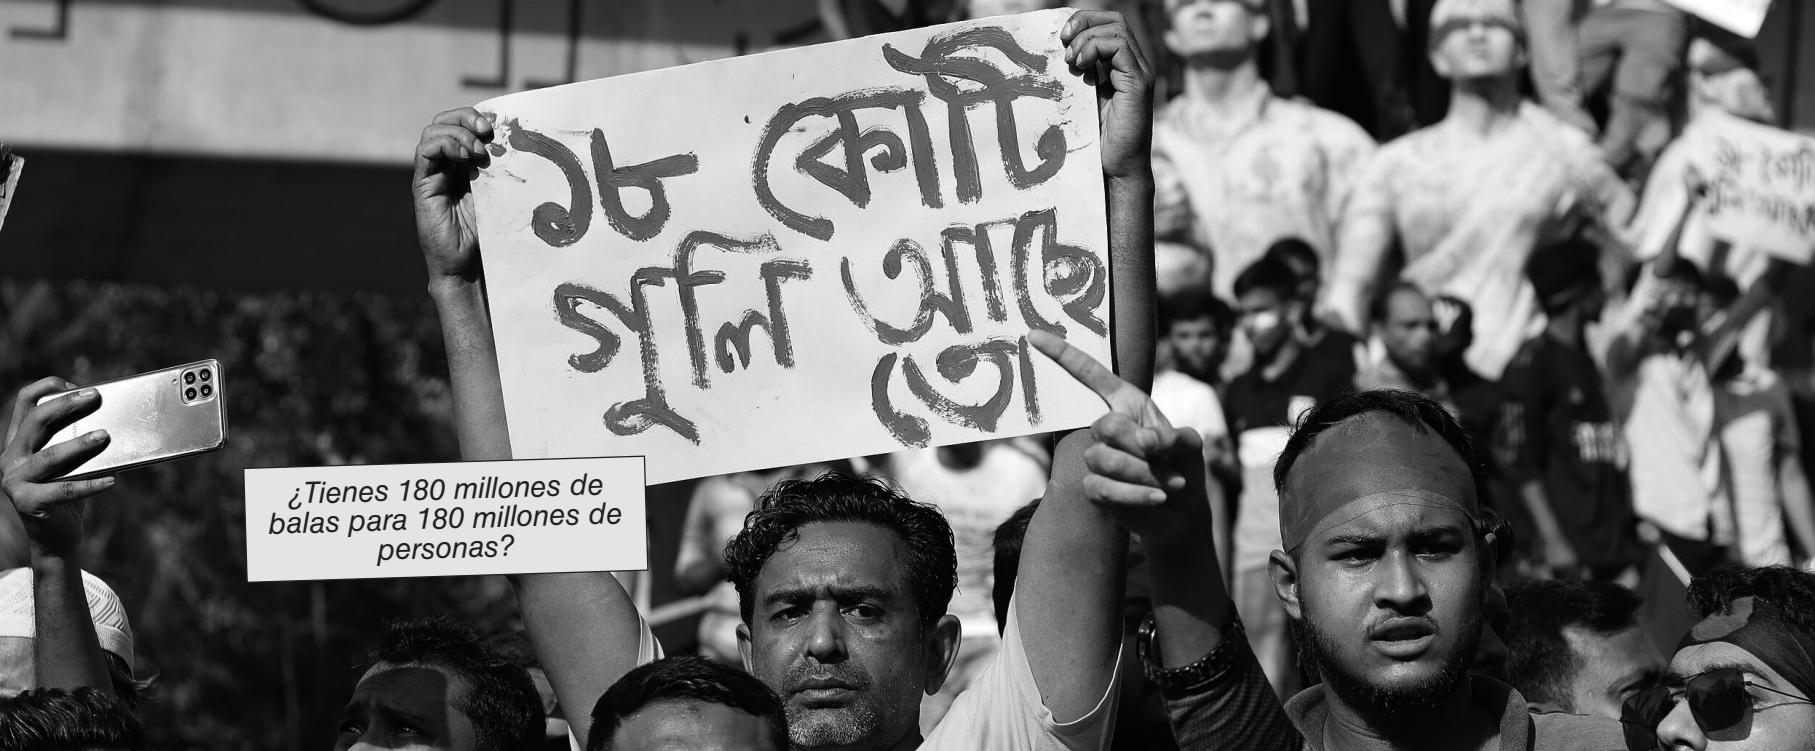 ১৮ কোটি
গুলি আছে
তো
¿Tienes 180 millones de
balas para 180 millones de
personas?